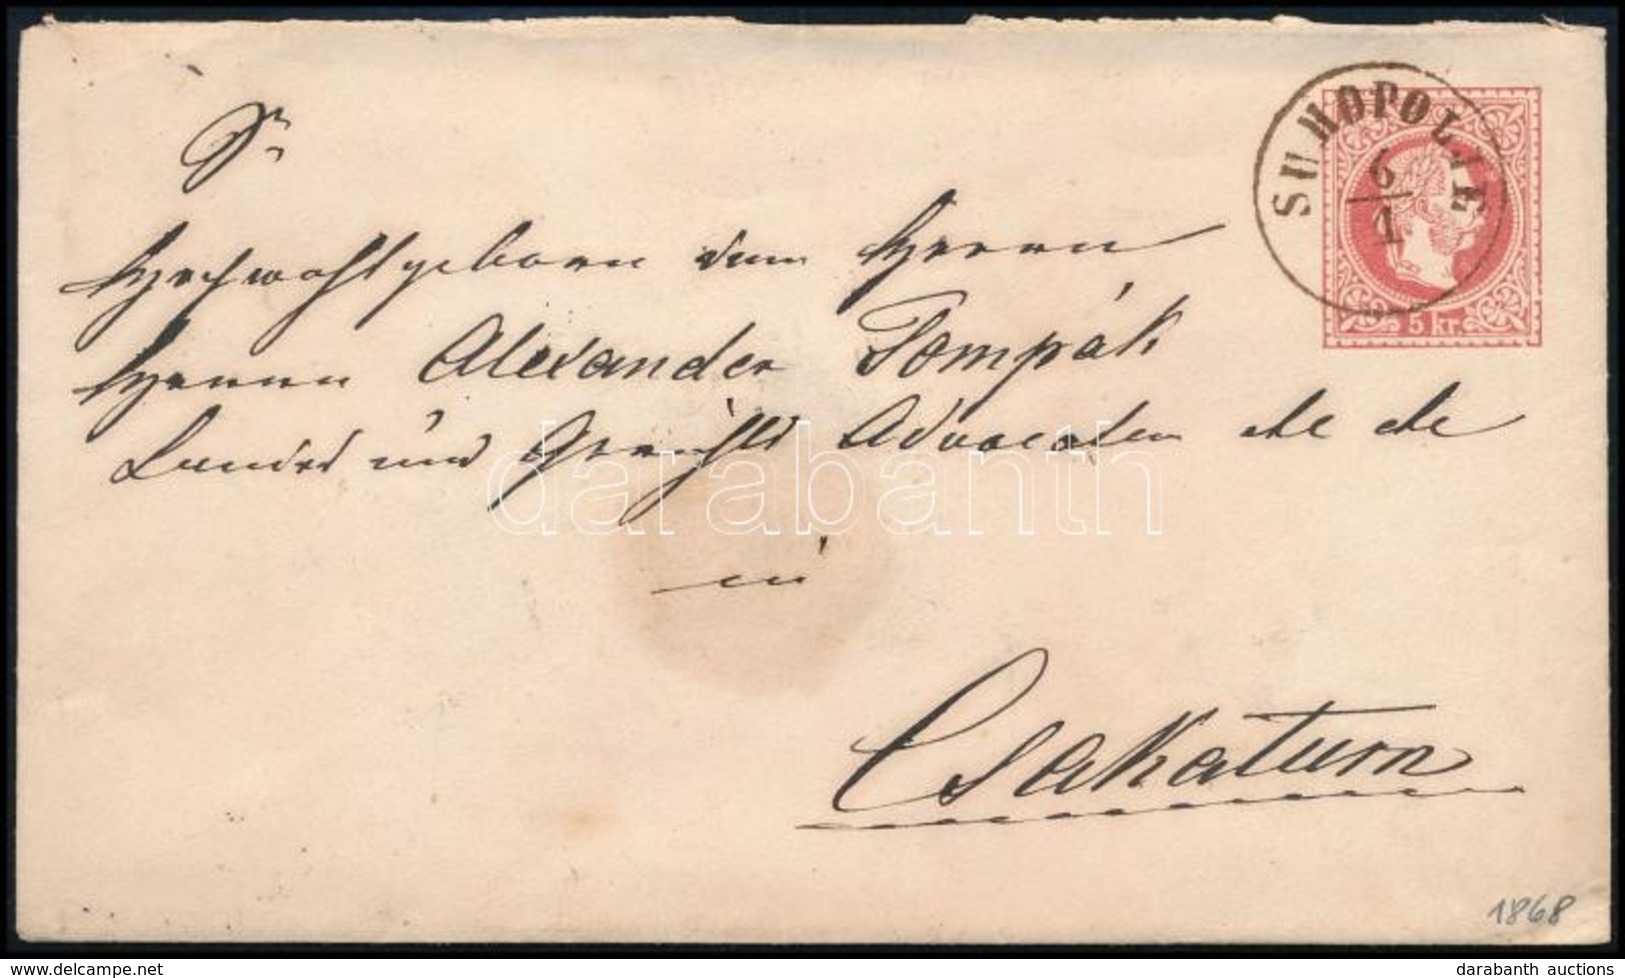 SUHOPOLJE
6
1
5 kr.
Sr
Hochwohlgeboren dem Herrn
Herrn Alexander Tompák
Landes und Gerichts Advocaten etc etc
in
Csakaturn
darabanth
1868
delcampe.net
darabanth auctions